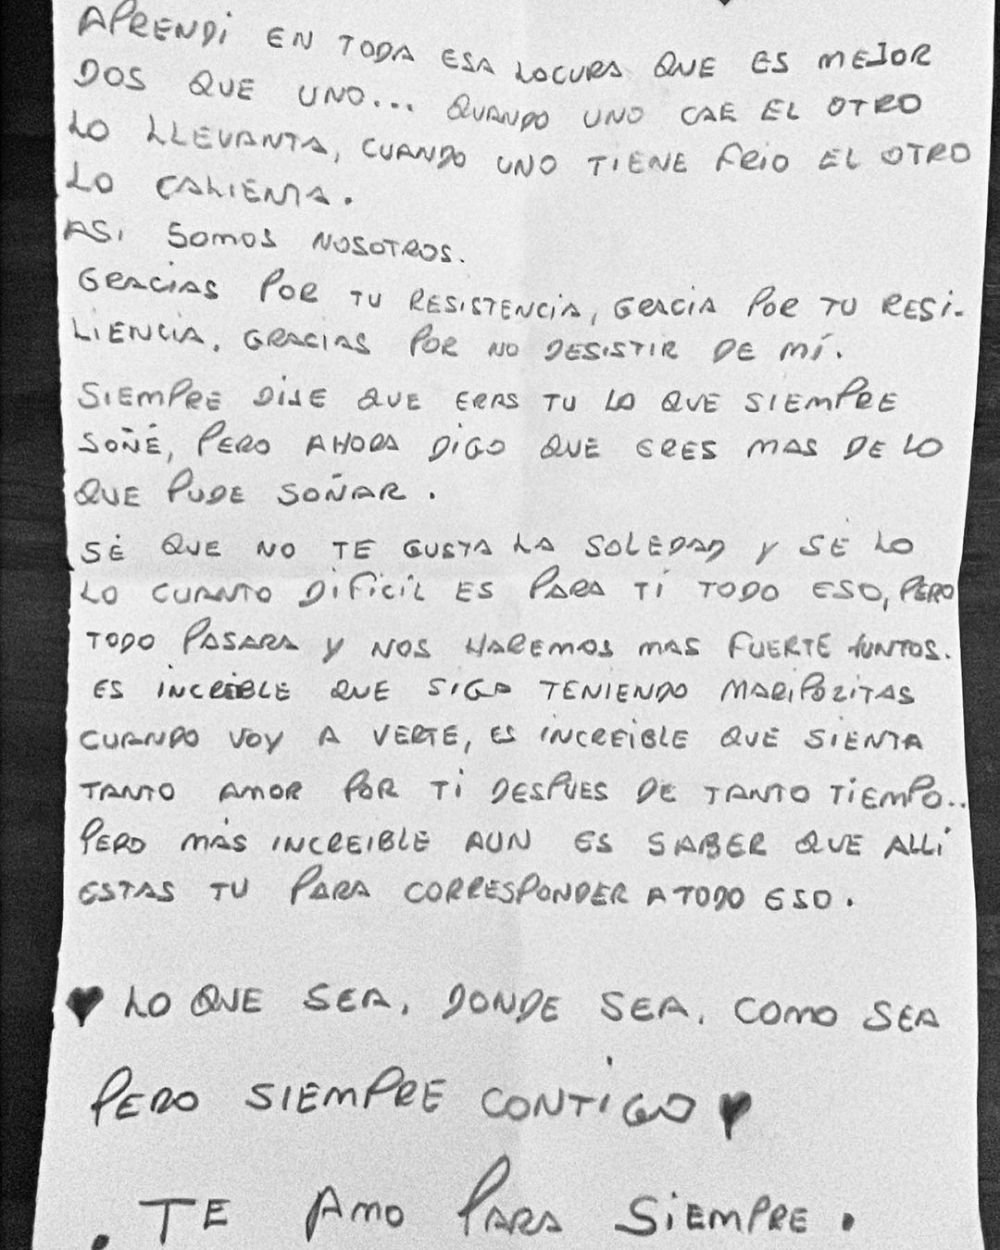 APRENDi EN TODA ESA LOCURA QUE ES MEJOR
DOS QUE UNO... QUANDO UNO CAE EL OTRO
LO LLEVANTA, CUANDO UNO TIENE FRIO EL OTRO
LO CALIENTA.
ASi SOMOS NOSOTROS.
GRACIAS POR TU RESISTENCIA, GRACIA POR TU RESi-
LIENCIA, GRACIAS POR NO DESISTIR DE MÍ.
SIEMPRE DIJE QUE ERAS TU LO QUE SIEMPRE
SOÑÉ, PERO AHORA DIGO QUE ERES MAS DE LO
QUE PUDE SOÑAR.
SÉ QUE NO TE GUSTA LA SOLEDAD Y SÉ LO
LO CUANTO DiFiCiL ES PARA TI TODO ESO, PERO
TODO PASARA Y NOS HAREMOS MAS FUERTE JUNTOS.
ES INCREIBLE QUE SIGO TENIENDO MARIPOZITAS
CUANDO VOY A VERTE, ES INCREIBLE QUE SIENTA
TANTO AMOR POR TI DESPUES DE TANTO TIEMPO..
PERO MÁS INCREIBLE AUN ES SABER QUE ALLÍ
ESTAS TU PARA CORRESPONDER A TODO ESO.
♥ LO QUE SEA, DONDE SEA, COMO SEA
PERO SIEMPRE CONTIGO ♥
. TE AMO PARA SIEMPRE.